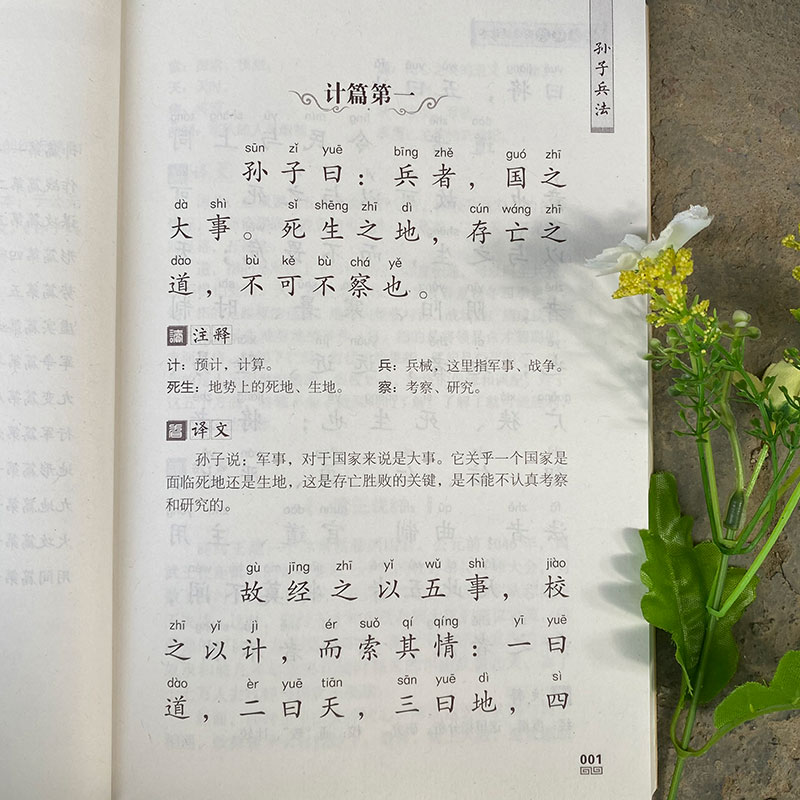 孙子兵法
计篇第一
sūn zǐ yuē bīng zhě guó zhī
孙子曰：兵者，国之
dà shì sǐ shēng zhī dì cún wáng zhī
大事。死生之地，存亡之
dào bù kě bù chá yě
道，不可不察也。
注释
计：预计，计算。 兵：兵械，这里指军事、战争。
死生：地势上的死地、生地。 察：考察、研究。
译文
孙子说：军事，对于国家来说是大事。它关乎一个国家是
面临死地还是生地，这是存亡胜败的关键，是不能不认真考察
和研究的。
gù jīng zhī yǐ wǔ shì jiào
故经之以五事，校
zhī yǐ jì ér suǒ qí qíng yī yuē
之以计，而索其情：一曰
dào èr yuē tiān sān yuē dì sì
道，二曰天，三曰地，四
001